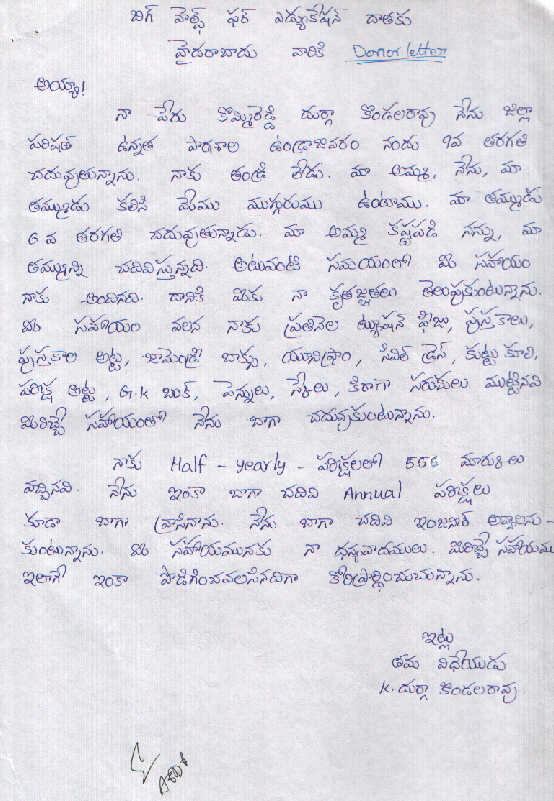 బిగ్ హెల్ప్ ఫర్ ఎడ్యుకేషన్ దాతకు
హైదరాబాదు వారికి Donor letter
అయ్యా!
నా పేరు కొమ్మిరెడ్డి దుర్గా కొండలరావు నేను జిల్లా
పరిషత్ ఉన్నత పాఠశాల ఉండ్రాజవరం నందు 9వ తరగతి
చదువుతున్నాను. నాకు తండ్రి లేడు. మా అమ్మ, నేను, మా
తమ్ముడు కలిసి మేము ముగ్గురుము ఉంటాము. మా తమ్ముడు
6 వ తరగతి చదువుతున్నాడు. మా అమ్మ కష్టపడి నన్ను, మా
తమ్మున్ని చదివిస్తున్నది. అటువంటి సమయంలో మీ సహాయం
నాకు అందినది. దానికి మీకు నా కృతజ్ఞతలు తెలుపుకుంటున్నాను.
మీ సహాయం వలన నాకు ప్రతినెల ట్యూషన్ ఫీజు, పుస్తకాలు,
పుస్తకాల అట్ట, జామెంట్రీ బాక్సు, యూనిఫాం, సివిల్ డ్రెస్ కుట్టు కూలి,
పరీక్ష అట్ట, G.K బుక్, పెన్నులు, స్కేలు, కిరాణా సరుకులు ముట్టినవి
మీరిచ్చే సహాయంతో నేను బాగా చదువుకుంటున్నాను.
నాకు Half - yearly - పరీక్షలలో 566 మార్కులు
వచ్చినవి. నేను ఇంకా బాగా చదివి Annual పరీక్షలు
కూడా బాగా వ్రాసినాను. నేను బాగా చదివి ఇంజనీర్ అవ్వాలను-
కుంటున్నాను. మీ సహాయమునకు నా ధన్యవాదములు. మీరిచ్చే సహాయము
ఇలాగే ఇంకా పొడిగించవలసినదిగా కోరిప్రార్థించుచున్నాను.
ఇట్లు
తమ విధేయుడు
K. దుర్గా కొండలరావు